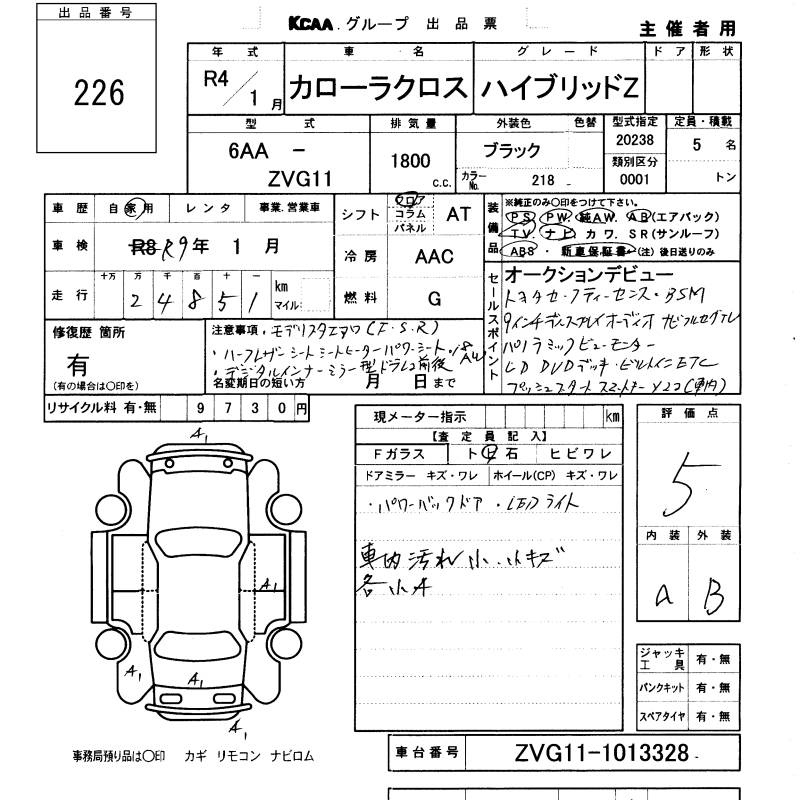 出品番号
226
KCAA グループ 出品票
主催者用
年式 車名 グレード ドア 形状
R4/1月 カローラクロス ハイブリッドZ
型式 排気量 外装色 色替 型式指定 定員・積載
6AA - ZVG11
1800 c.c.
ブラック
カラーNo. 218
20238
類別区分
0001
5 名
トン
車歴 自家用 レンタ 事業.営業車
車検 R8 R9年 1月
走行 十万 万 千 百 十 一
2 4 8 5 1 km マイル
シフト フロア コラム パネル AT
冷房 AAC
燃料 G
装備品
※純正のみ〇印をつけて下さい。
PS PW 純AW. AB(エアバック)
TV. ナビ カワ. SR(サンルーフ)
ABS ・ 新車保証書・(注) 後日送りのみ
セールスポイント
オークションデビュー
トヨタセーフティーセンス・BSM
9インチディスプレイオーディオ ナビフルセグTV
パノラミックビューモニター
CD DVDデッキ・ビルトインETC
プッシュスタート スマートキー×2コ(車内)
修復歴 箇所
有
(有の場合は〇印を)
注意事項・モデリスタエアロ(F・S・R)
・ハーフレザーシート シートヒーター パワーシート・18AW
・デジタルインナーミラー型ドラレコ前後
名変期日の短い方 月 日まで
リサイクル料 有・無 9 7 3 0 円
現メーター指示 km
【査定員記入】
Fガラス ト ヒ 石 ヒビワレ
ドアミラー キズ・ワレ ホイール(CP) キズ・ワレ
・パワーバックドア ・LEDライト
車内汚れ小・小キズ
各小A
評価点
5
内装 外装
A B
A1
A1
A1
A1
A1
ジャッキ工具 有・無
パンクキット 有・無
スペアタイヤ 有・無
事務局預り品は〇印 カギ リモコン ナビロム
車台番号 ZVG11-1013328